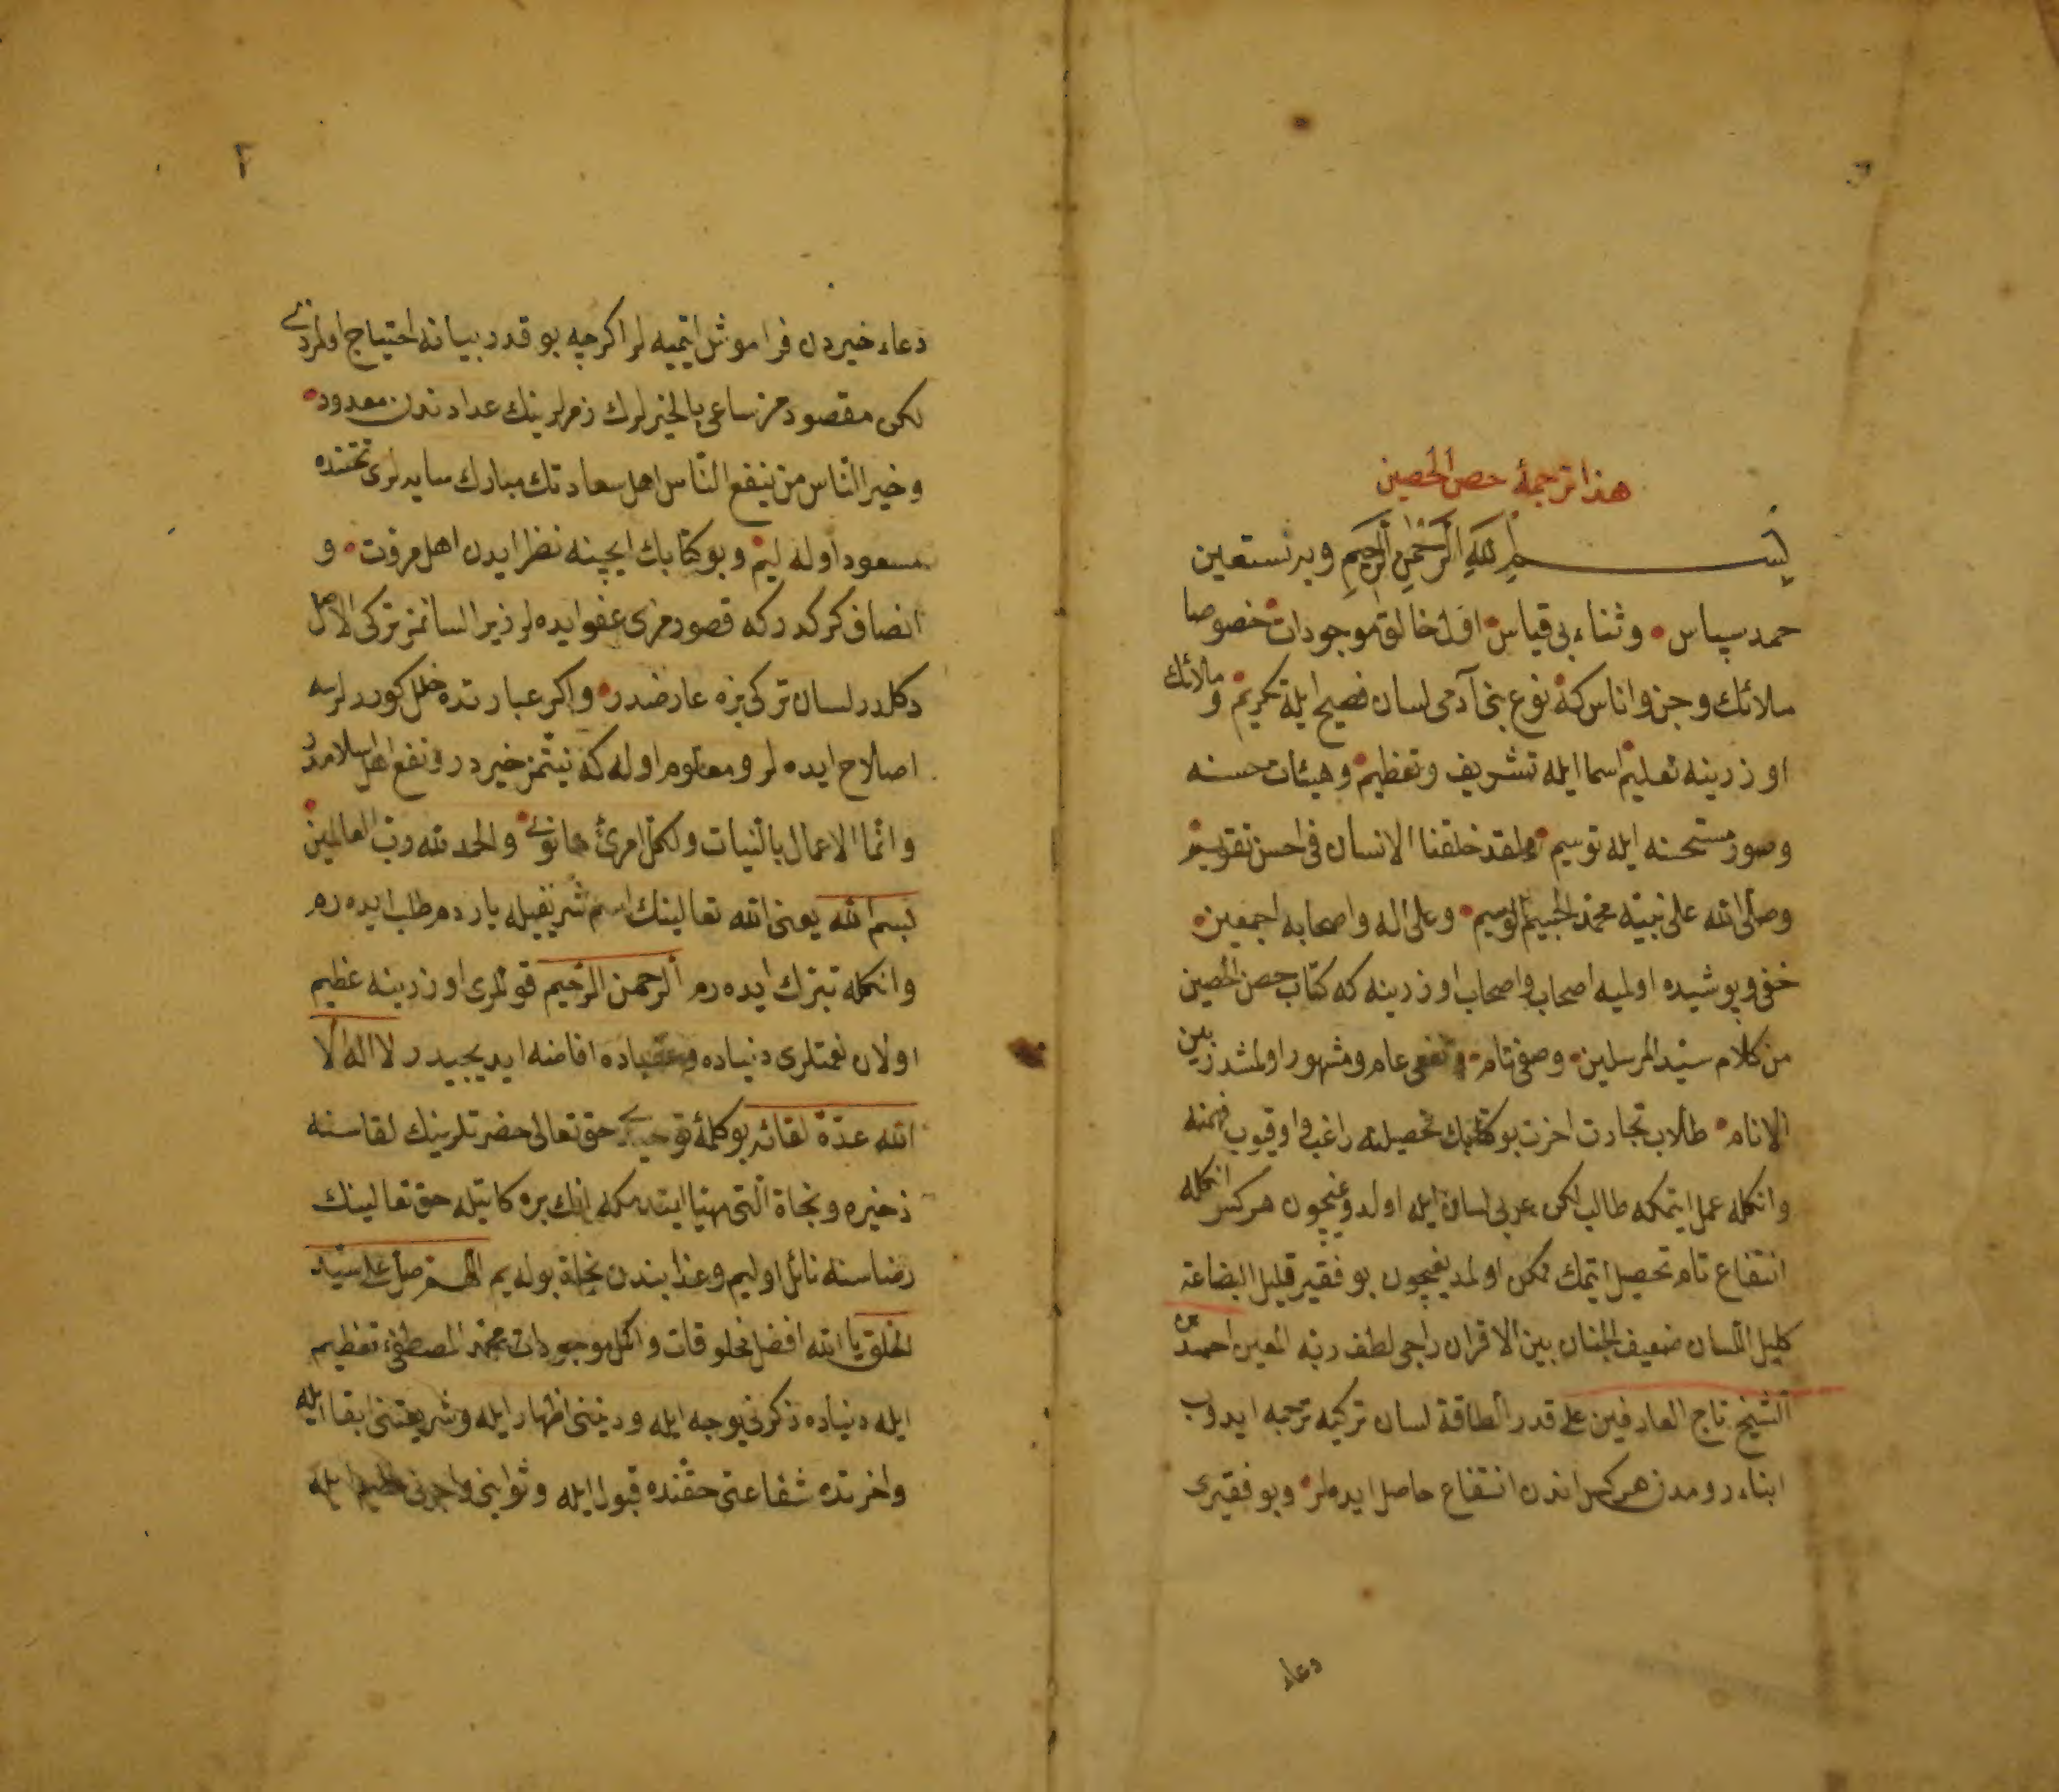 هذا ترجمهٔ حصن الحصين
بسم الله الرحمن الرحيم وبه نستعين
حمد سپاس وثناء بی قیاس اول خالق موجودات خصوصا
ملائك وجن واناس كه نوع بنی آدمی لسان فصیح ایله تكریم و ملائك
اوزرینه تعلیم اسما ایله تشریف وتعظیم وهیئات حسنه
وصور مستحسنه ایله توسیم ولقد خلقنا الانسان فی احسن تقویم
وصلی الله علی نبیه محمد الجسیم الوسیم وعلی اله واصحابه اجمعین
خفی وپوشیده اولمیه اصحاب واصحاب اوزرینه كه كتاب حصن الحصین
من كلام سید المرسلین وصفی تام ونفعی عام ومشهور اولمشدر بین
الانام طلاب تجارت اخرت بو كتابك تحصیلنه راغب واوقیوب فهمنه
وانكله عمل ایتمكه طالب لكن عربی لسان ایله اولدوغیچون هركس انكله
انتفاع تام تحصیل ایتمك ممكن اولمدیغیچون بو فقیر قلیل البضاعة
كلیل اللسان ضعیف الجنان بین الاقران راجی لطف ربه المعین احمد بن
الشیخ تاج العارفین علی قدر الطاقة لسان تركیه ترجمه ایدوب
ابناء رومدن هركس اندن انتفاع حاصل ایده لر وبو فقیری
دعاء
٢
دعاء خیردن فراموش ایتمیه لر اكرچه بو قدر بیانه احتیاج اولمزدی
لكن مقصودمز ساعی بالخیرلرك زمره لرینك عدادندن معدود
وخیر الناس من ینفع الناس اهل سعادتك مبارك سایه لری تحتنده
مسعود اوله لیم وبو كتابك ایچینه نظر ایدن اهل مروت و
انصاف كركدركه قصورمزی عفو ایده لر زیرا لسانمز تركی الاصل
دكلدر لسان تركی بزه عارضدر واكر عبارتده خلل كوررلرسه
اصلاح ایده لر ومعلوم اوله كه نیتمز خیردر ونفع اهل اسلامدر
وانما الاعمال بالنیات ولكل امرئ ما نوی والحمد لله رب العالمین
بسم الله یعنی الله تعالینك اسم شریفیله یاردم طلب ایده رم
وانكله تبرك ایده رم الرحمن الرحیم قوللری اوزرینه عظیم
اولان نعمتلری دنیاده وعقباده افاضه ایدیجیدر لا اله الا
الله عدة لقائه بو كلمهٔ توحیدی حق تعالی حضرتلرینك لقاسنه
ذخیره ونجاة التی مهیا ایتدمكه انك بره كاتیله حق تعالینك
رضاسنه نائل اولیم وعذابندن نجاة بوله یم اللهم صل علی سید
الخلق یا الله افضل مخلوقات واكمل موجودات محمد المصطفیٰ تعظیم
ایله دنیاده ذكرنی یوجه ایله ودیننی اظهار ایله وشریعتنی ابقا ایله
واخرتده شفاعتی حقنده قبول ایله وثوابنی واجرنی عظیم ایله